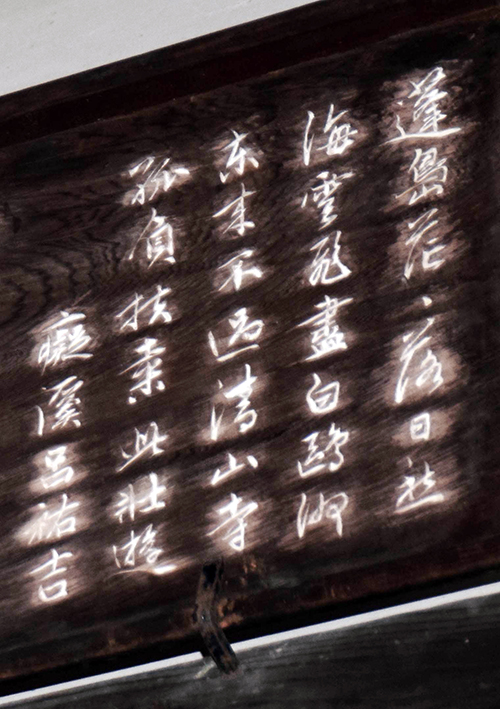 蓬島茫〻落日愁
海雲飛盡白鷗洲
东来不過清山寺
孤負扶桑此壯遊
癡溪呂祐吉